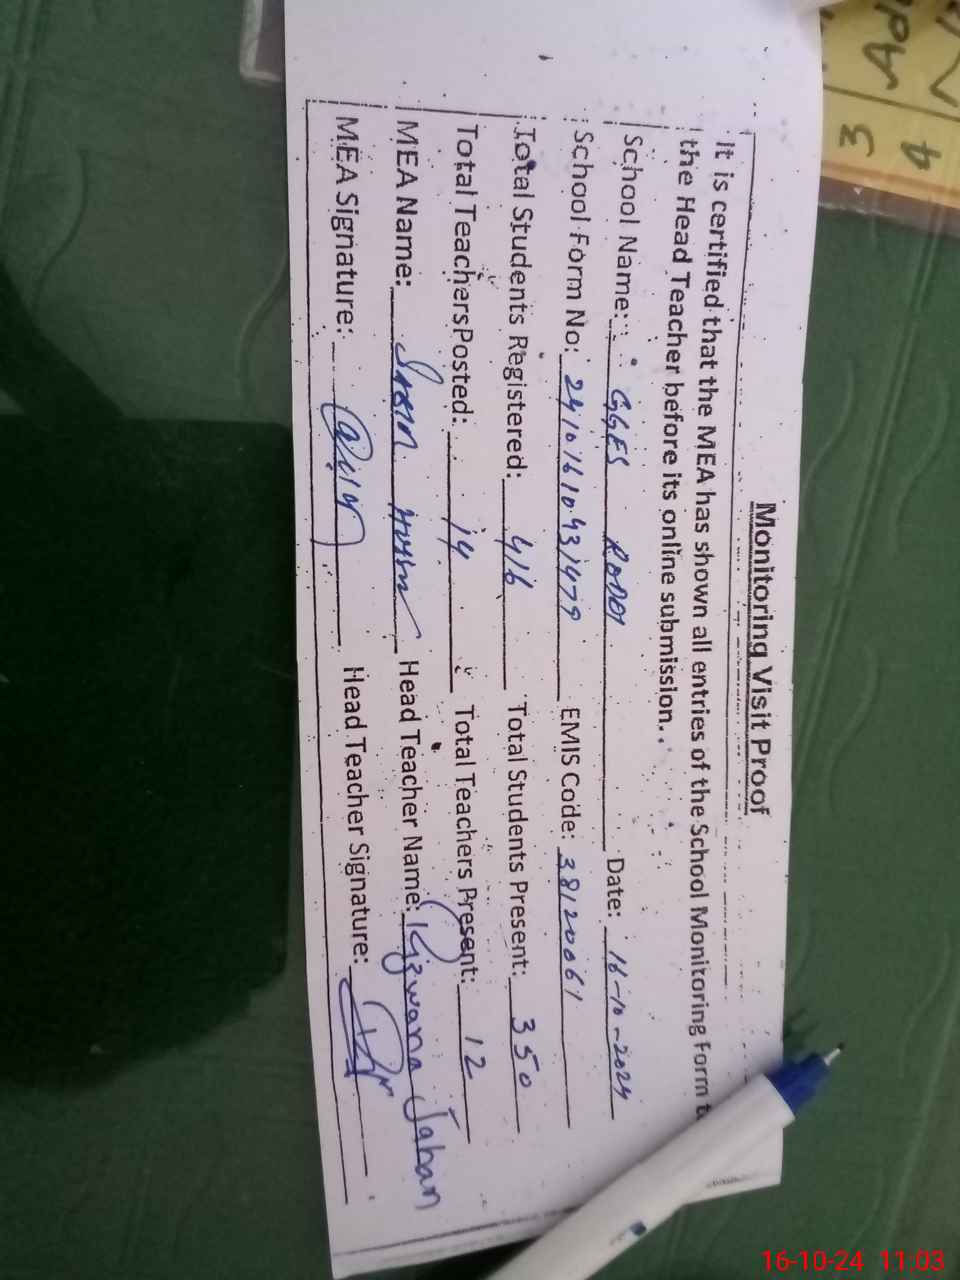 Monitoring Visit Proof
It is certified that the MEA has shown all entries of the School Monitoring Form t
the Head Teacher before its online submission.
School Name: GGES RODDY Date: 16-10-2024
School Form No: 24101610431479 EMIS Code: 38120061
Total Students Registered: 416 Total Students Present: 350
Total Teachers Posted: 14 Total Teachers Present: 12
MEA Name: Head Teacher Name: Rizwana Jahan
MEA Signature: Head Teacher Signature:
3
4
16-10-24 11:03